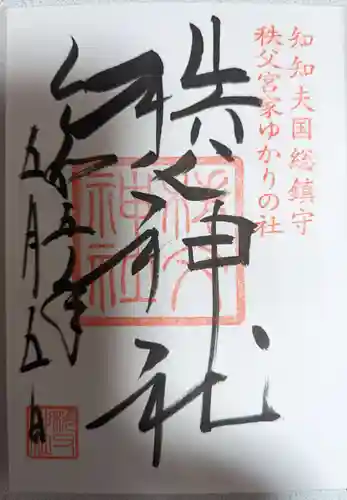 知知夫国総鎮守
秩父宮家ゆかりの社
秩父神社
令和五年
五月五日
秩父
神社